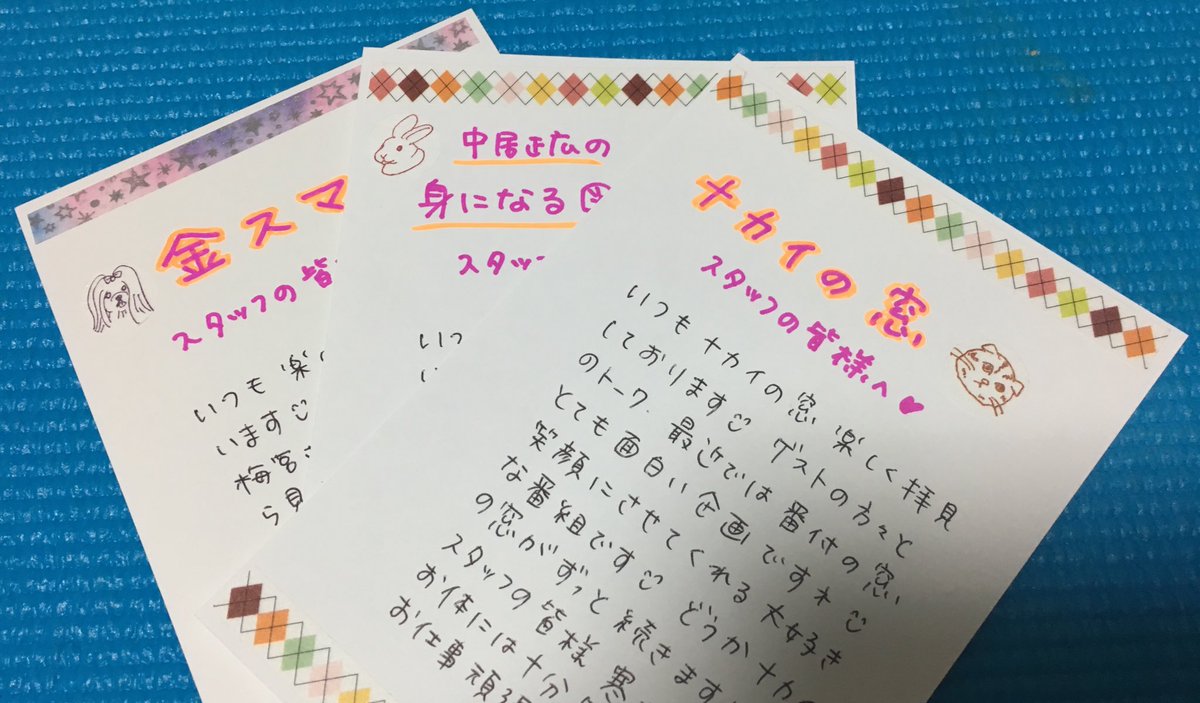 金スマ
スタッフの皆
いつも楽
います
梅宮
ら見
中居正広の
身になる
スタッ
いつ
い
ナカイの窓
スタッフの皆様へ♥
いつもナカイの窓 楽しく拝見
しております☺ ゲストの方々と
のトーク、最近では番付の窓
とても面白い企画ですネ☺
笑顔にさせてくれる大好き
な番組です☺ どうかナカ
の窓がずっと続きます
スタッフの皆様 寒
お体には十分
お仕事頑張